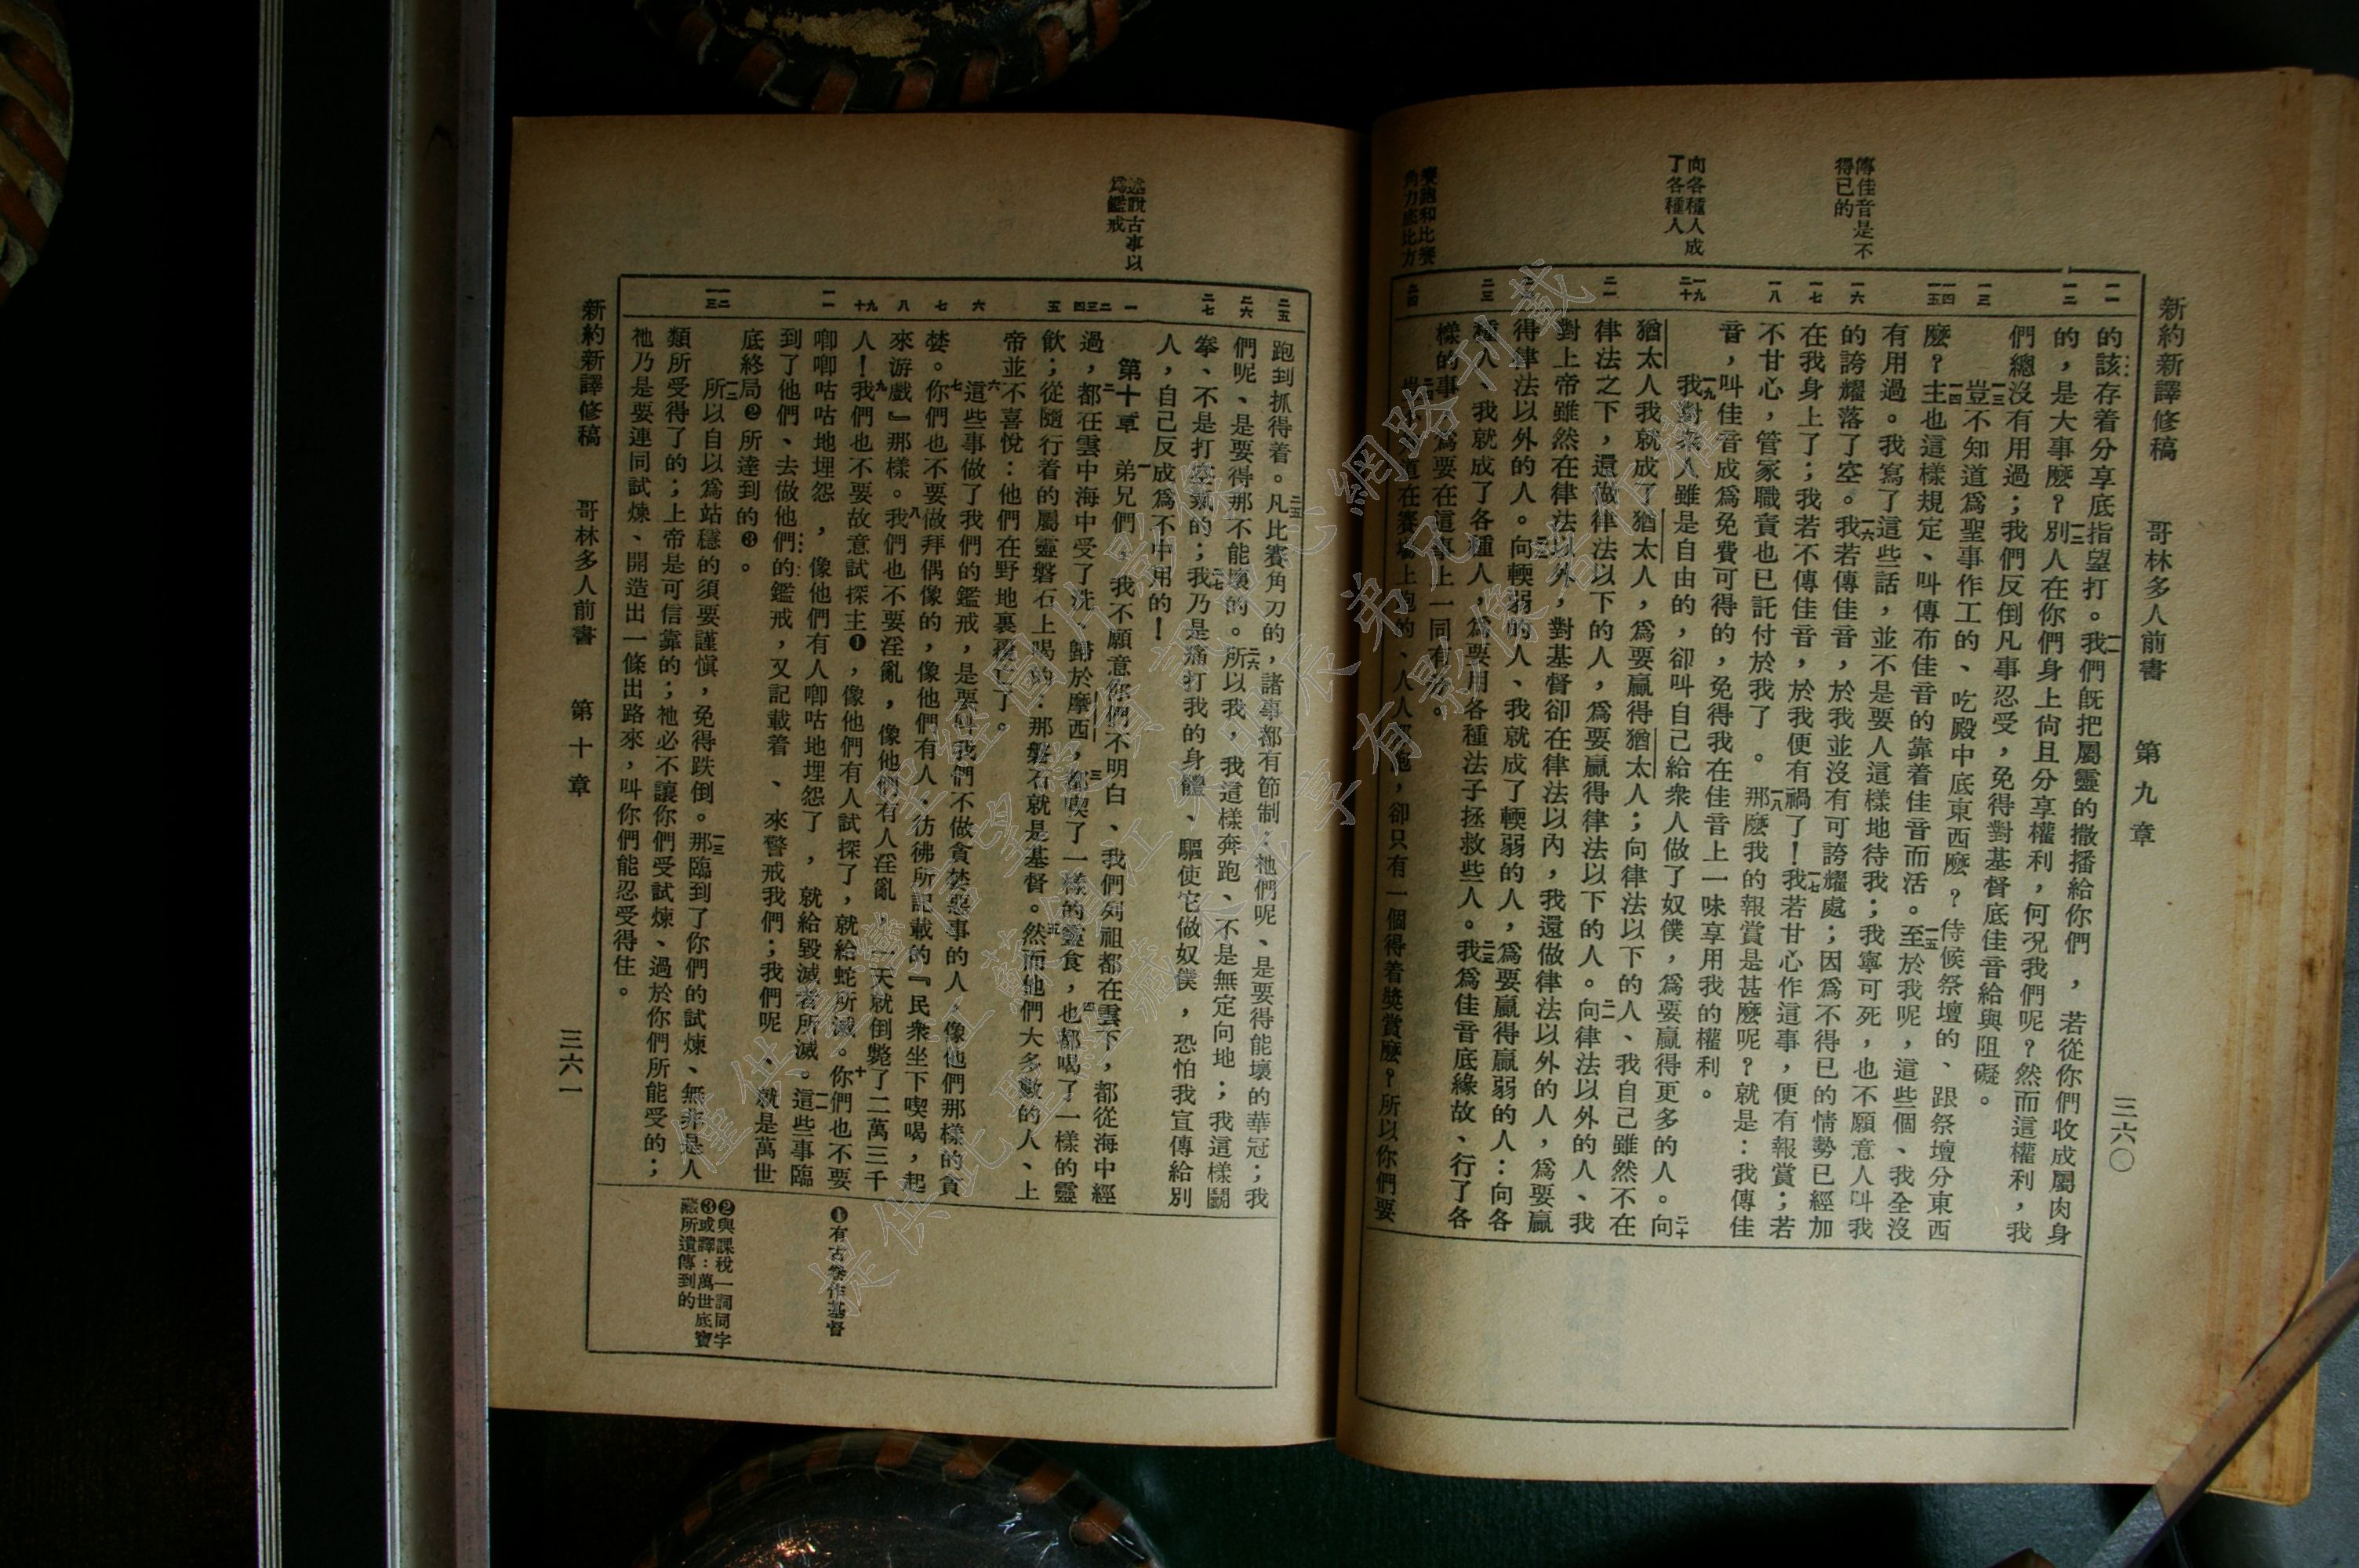 新約新譯修稿　哥林多人前書　第九章　三六〇
傳佳音是不
得已的
向各種人成
了各種人
賽跑和比賽
角力底比方
的該存着分享底指望打。一一我們既把屬靈的撒播給你們，若從你們收成屬肉身
的，是大事麼？一二別人在你們身上尚且分享權利，何況我們呢？然而這權利，我
們總沒有用過；我們反倒凡事忍受，免得對基督底佳音給與阻礙。
一三豈不知道爲聖事作工的、吃殿中底東西麼？侍候祭壇的、跟祭壇分東西
麼？一四主也這樣規定、叫傳布佳音的靠着佳音而活。一五至於我呢，這些個、我全沒
有用過。我寫了這些話，並不是要人這樣地待我；我寧可死，也不願意人叫我
的誇耀落了空。一六我若傳佳音，於我並沒有可誇耀處；因爲不得已的情勢已經加
在我身上了；我若不傳佳音，於我便有禍了！一七我若甘心作這事，便有報賞；若
不甘心，管家職責也已託付於我了。一八那麼我的報賞是甚麼呢？就是：我傳佳
音，叫佳音成爲免費可得的，免得我在佳音上一味享用我的權利。
一九我對衆人雖是自由的，卻叫自己給衆人做了奴僕，爲要贏得更多的人。二十向
猶太人我就成了猶太人，爲要贏得猶太人；向律法以下的人、我自己雖然不在
律法之下，還做律法以下的人，爲要贏得律法以下的人。二一向律法以外的人、我
對上帝雖然在律法以外，對基督卻在律法以內，我還做律法以外的人，爲要贏
得律法以外的人。二二向輭弱的人、我就成了輭弱的人，爲要贏得贏弱的人：向各
種人、我就成了各種人，爲要用各種法子拯救些人。二三我爲佳音底緣故、行了各
樣的事，爲要在這事上一同有分。
二四豈不知道在賽場上跑的、人人都跑，卻只有一個得着獎賞麼？所以你們要
述說古事以
爲鑑戒
跑到抓得着。二五凡比賽角力的，諸事都有節制：他們呢、是要得能壞的華冠；我
們呢、是要得那不能壞的。二六所以我，我這樣奔跑、不是無定向地；我這樣鬭
拳、不是打空氣的；二七我乃是痛打我的身體、驅使它做奴僕，恐怕我宣傳給別
人，自己反成爲不中用的！
第十章　一弟兄們，我不願意你們不明白、我們列祖都在雲下，都從海中經
過，二都在雲中海中受了洗、歸於摩西，三都喫了一樣的靈食，四也都喝了一樣的靈
飲；從隨行着的屬靈磐石上喝的：那磐石就是基督。五然而他們大多數的人、上
帝並不喜悅：他們在野地裏覆亡了。
六這些事做了我們的鑑戒，是要叫我們不做貪婪惡事的人，像他們那樣的貪
婪。七你們也不要做拜偶像的，像他們有人，彷彿所記載的『民衆坐下喫喝，起
來游戲』那樣。八我們也不要淫亂，像他們有人淫亂，一天就倒斃了二萬三千
人！九我們也不要故意試探主❶，像他們有人試探了，就給蛇所滅。十你們也不要
唧唧咕咕地埋怨，像他們有人唧咕地埋怨了，就給毀滅者所滅。一一這些事臨
到了他們、去做他們的鑑戒，又記載着、來警戒我們；我們呢、就是萬世
底終局❷所達到的❸。
一二所以自以爲站穩的須要謹愼，免得跌倒。一三那臨到了你們的試煉、無非是人
類所受得了的；上帝是可信靠的；祂必不讓你們受試煉、過於你們所能受的；
祂乃是要連同試煉、開造出一條出路來，叫你們能忍受得住。
❶有古卷作基督
❷與課稅一詞同字
❸或譯：萬世底寶
藏所遺傳到的
新約新譯修稿　哥林多人前書　第十章　三六一
僅供聖經圖片影像